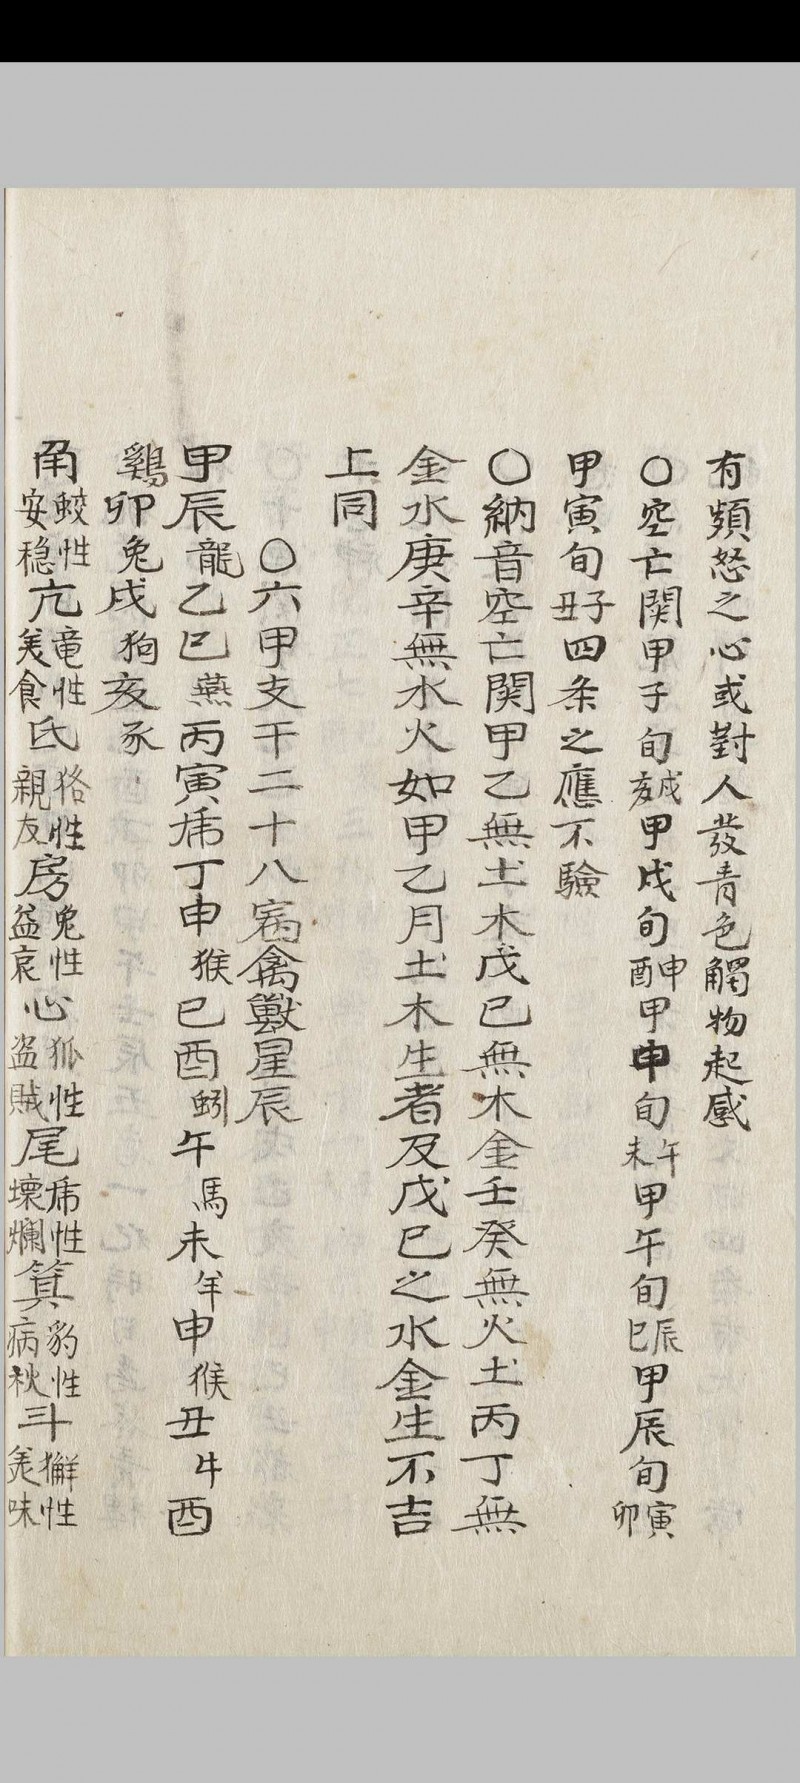 有頻怒之心或對人發青色觸物起感
〇空亡関甲子旬戌亥甲戌旬申酉甲申旬午未甲午旬辰巳甲辰旬寅卯
甲寅旬子丑四条之應不驗
〇納音空亡関甲乙無土木戊巳無木金壬癸無火土丙丁無
金水庚辛無水火如甲乙月土木生者及戊巳之水金生不吉
上同
〇六甲支干二十八宿禽獸星辰
甲辰龍乙巳燕丙寅虎丁申猴巳酉蚓午馬未羊申猴丑牛酉
鷄卯兔戌狗亥豕
角蛟性安穏亢竜性美食氐狢性親友房兔性益哀心狐性盗賊尾虎性壊爛箕豹性病秋斗獬性美味